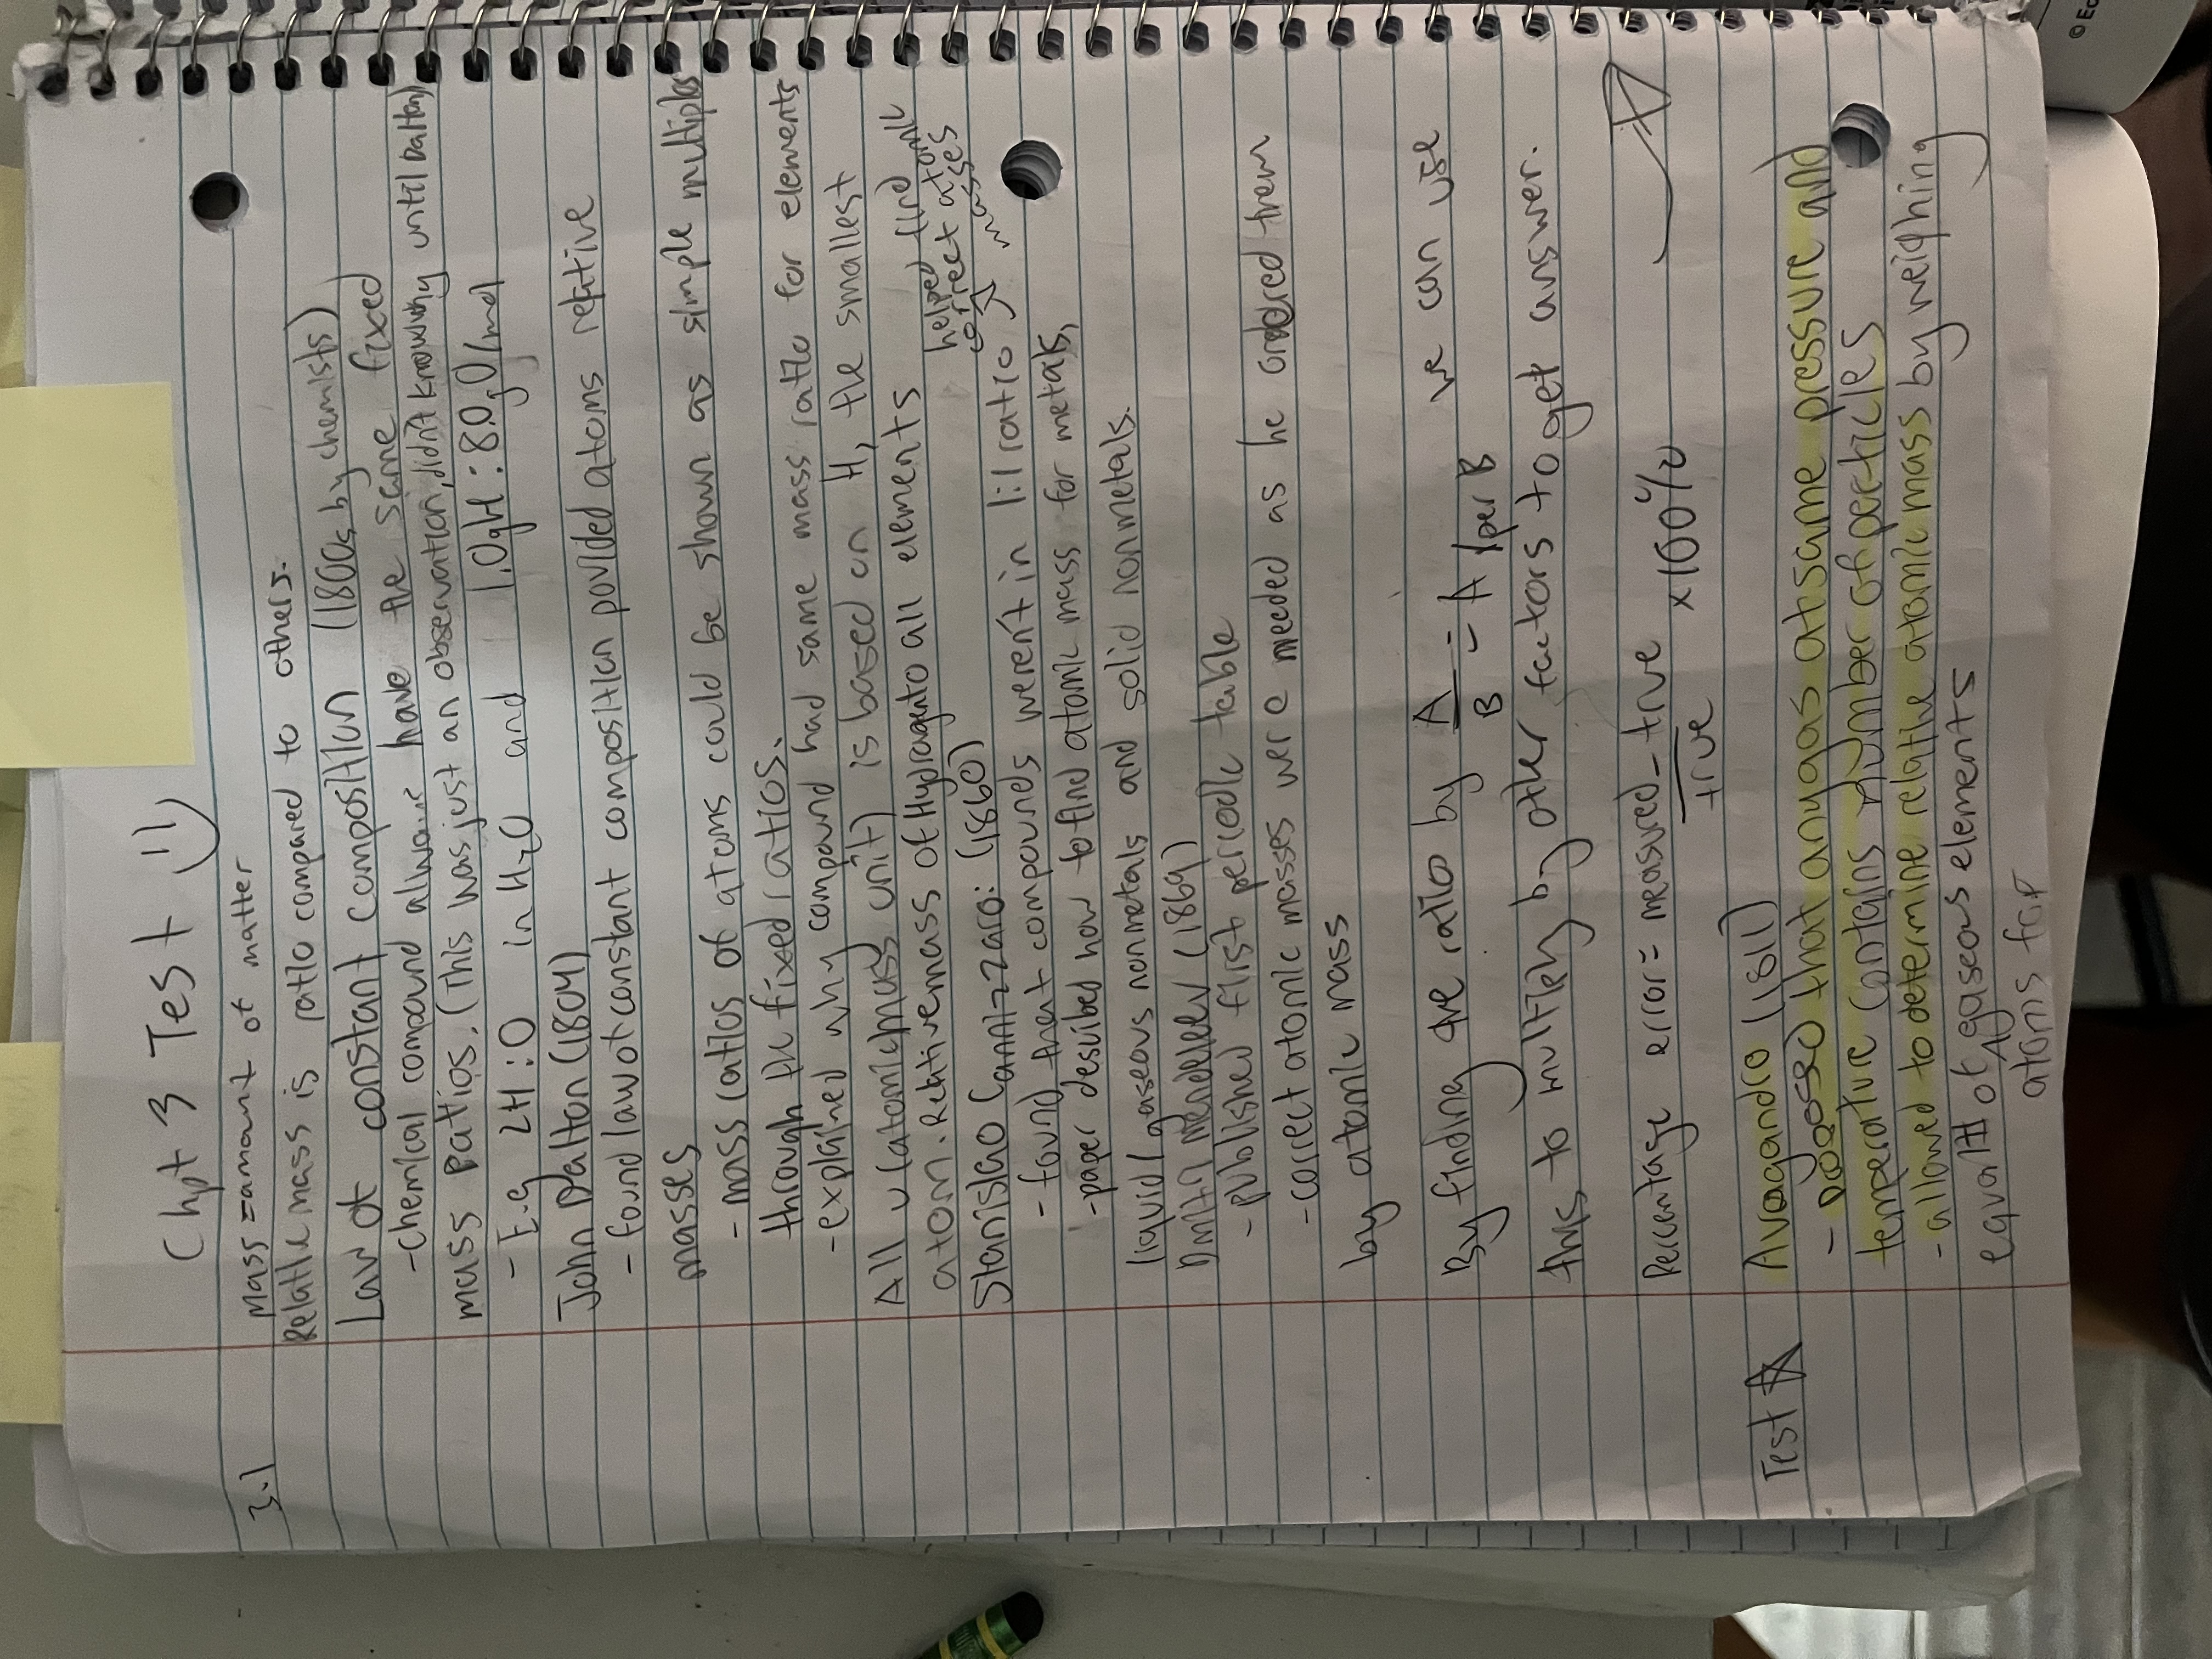 Chpt 3 Test =)
3.1 Mass = amount of matter
Relative mass is ratio compared to others.
Law of constant composition (1800s by chemists)
- Chemical compound always have the same fixed
mass ratios. (This was just an observation, didn't know why until Dalton)
- E.g 2H:O in H2O and 1.0gH : 8.0gO/mol
John Dalton (1804)
- found law of constant composition povided atoms reltive
masses
- mass ratios of atoms could be shown as simple multiples
through the fixed ratios.
- explained why compound had same mass ratio for elements
All u (atomic mass unit) is based on H, the smallest
atom. Relative mass of Hydrogen to all elements
Stanislao Cannizzaro: (1860)
helped find
correct atomic
masses
- found that compounds weren't in 1:1 ratio
- paper desribed how to find atomic mass for metals,
liquid/gaseous nonmetals and solid nonmetals.
Dmitri Mendeleev (1869)
- published first periodic table
- correct atomic masses were needed as he ordered them
by atomic mass
By finding the ratio by A/B = A per B we can use
this to multiply by other factors to get answer.
Percentage error = measured - true / true x100%
Test Avogandro (1811)
- proposed that any gas at same pressure and
temperature contains number of particles
- allowed to determine relative atomic mass by weighing
equal # of gaseous elements
atoms for